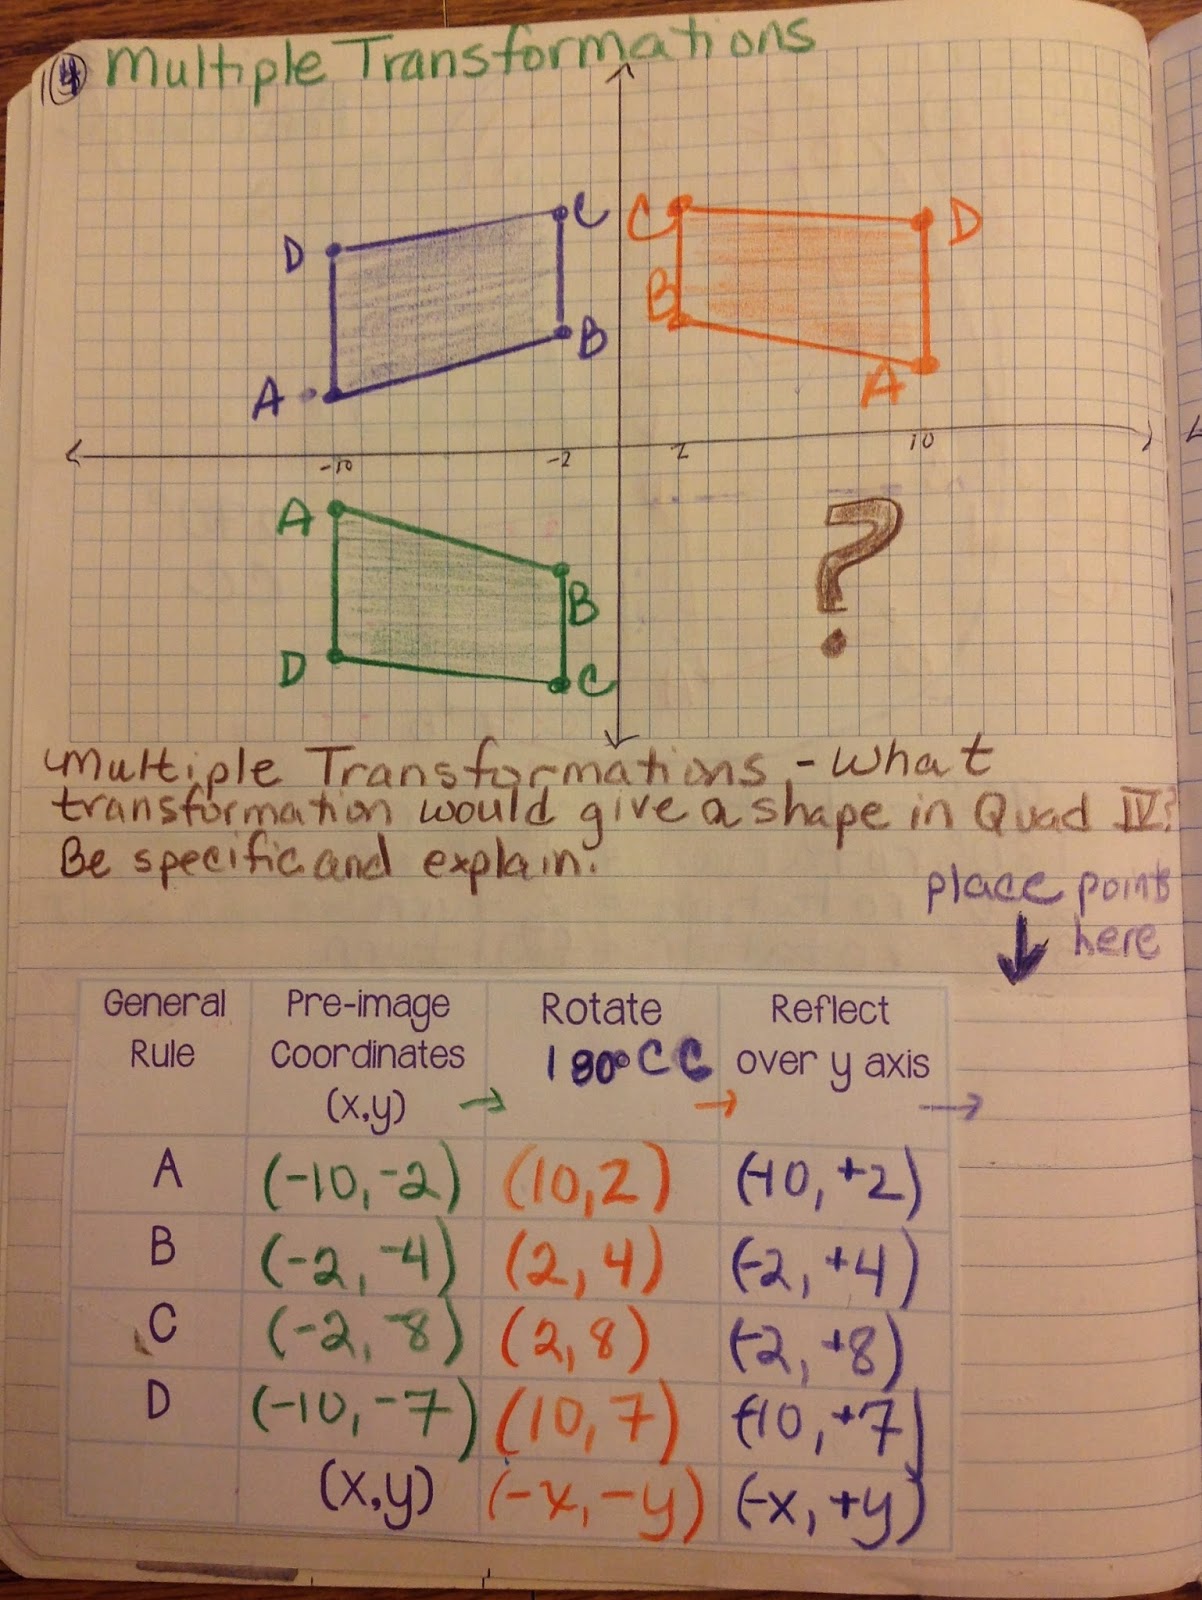 14 Multiple Transformations
C C D
D
B
B
A A
-10 -2 2 10
A
?
B
D C
Multiple Transformations - What
transformation would give a shape in Quad IV?
Be specific and explain.
place points
here
General Rule Pre-image Coordinates (x,y) → Rotate 180° CC → Reflect over y axis →
A (-10, -2) (10, 2) (-10, +2)
B (-2, -4) (2, 4) (-2, +4)
C (-2, -8) (2, 8) (-2, +8)
D (-10, -7) (10, 7) (-10, +7)
(x,y) (-x, -y) (-x, +y)